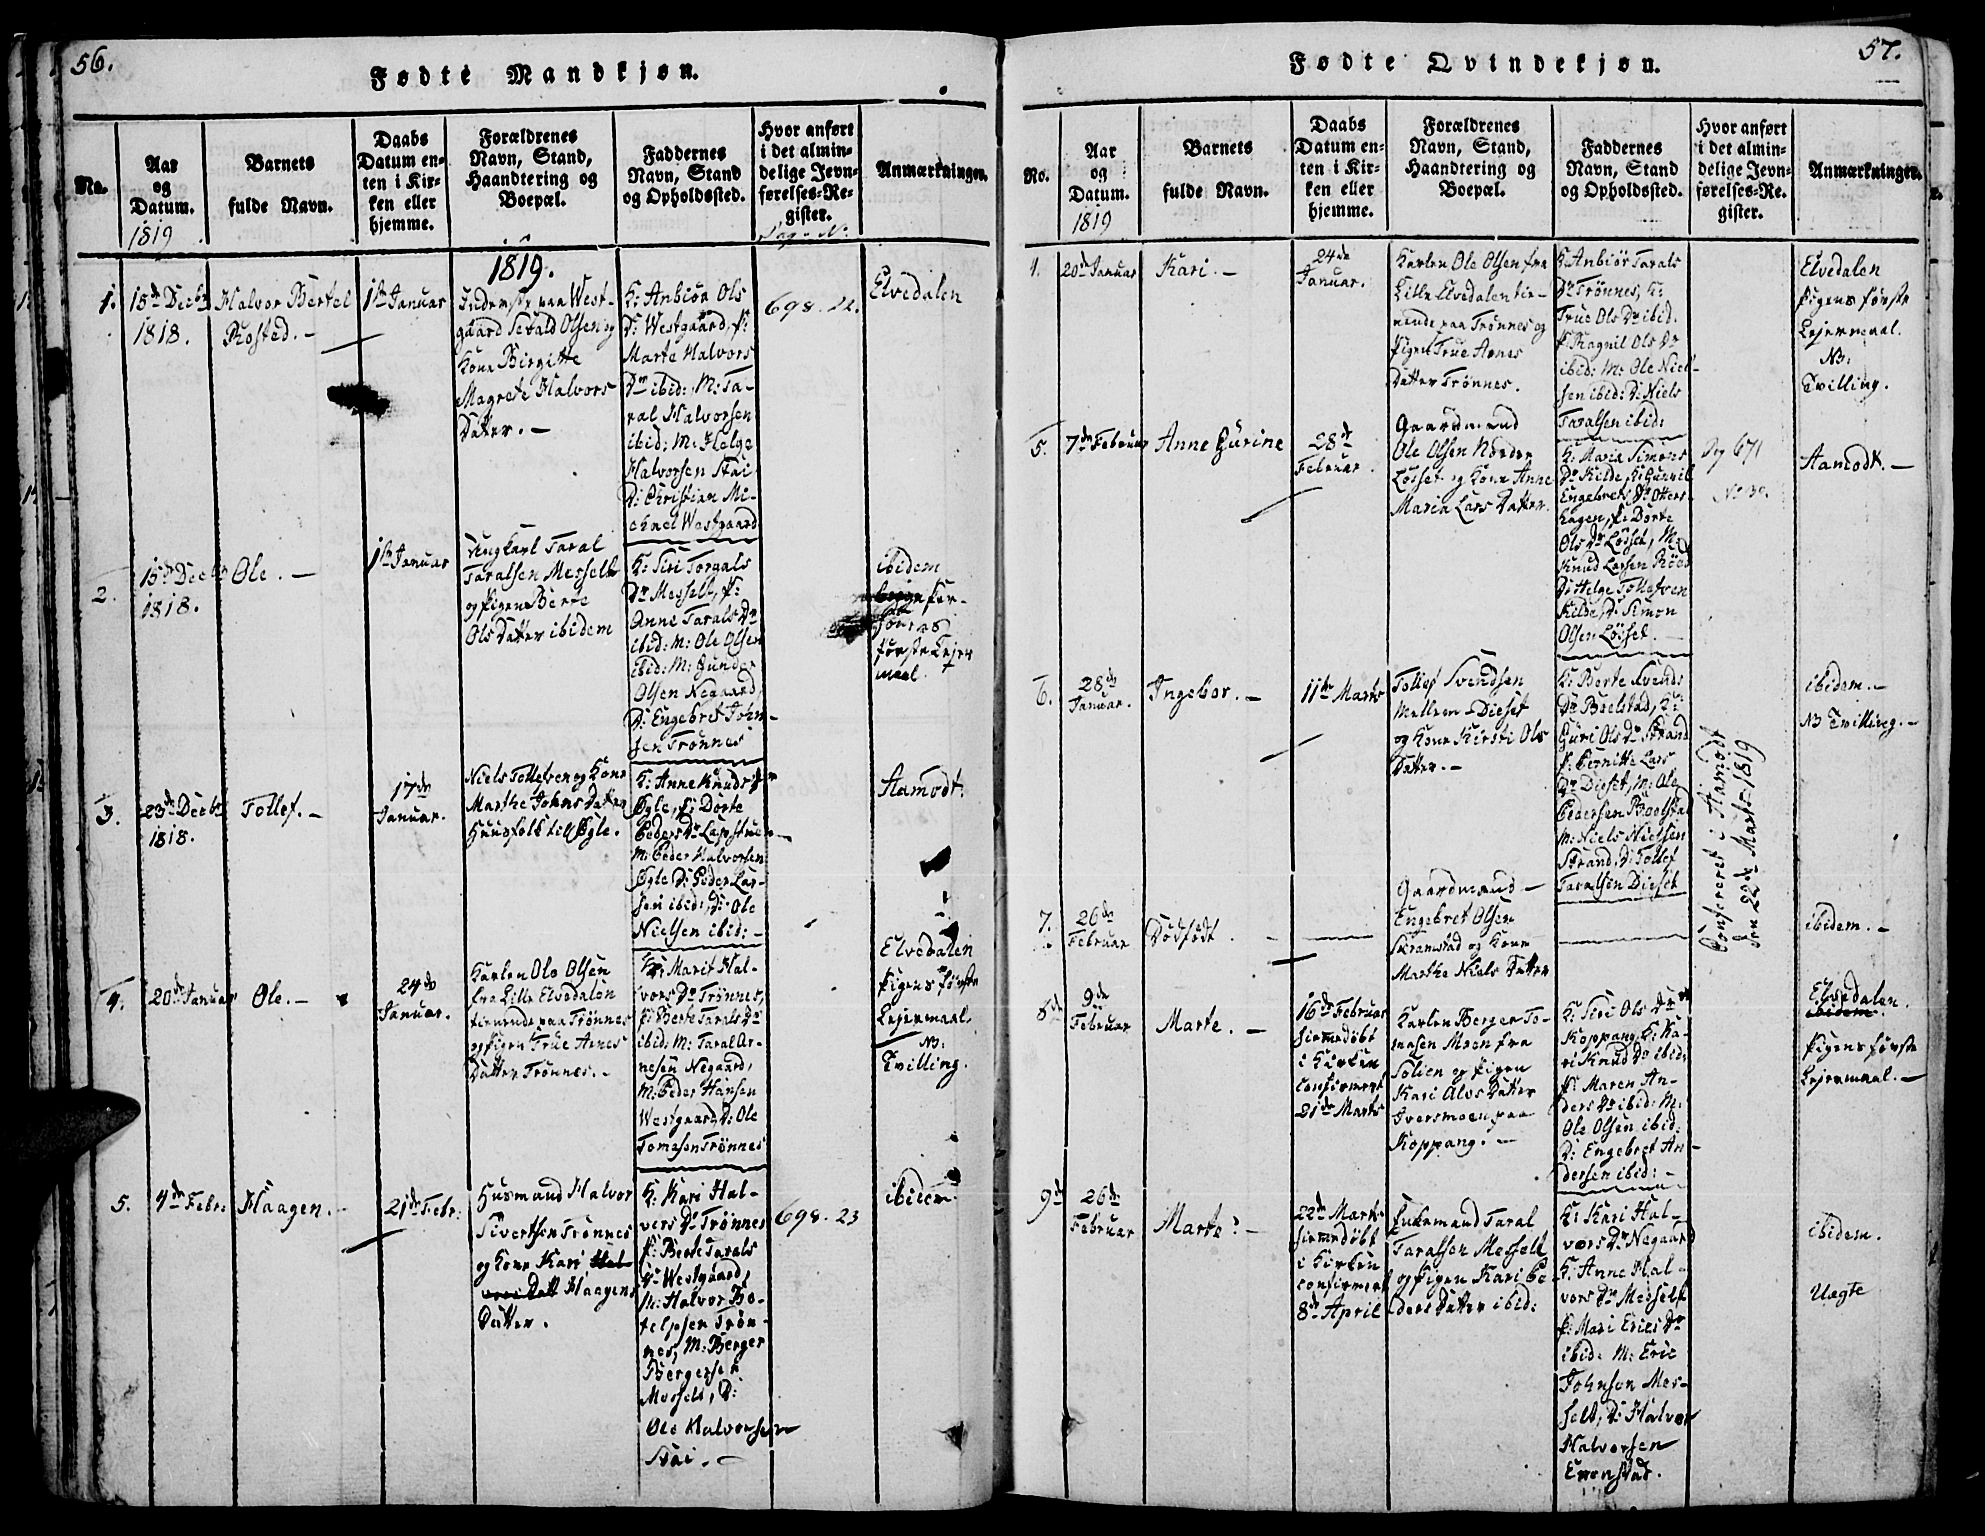 56.
Fødte Mandkjøn.
No.
Aar
og
Datum.
1819
Barnets
fulde Navn.
Daabs
Datum en-
ten i Kir-
ken eller
hjemme.
Forældrenes
Navn, Stand,
Haandtering og
Boepæl.
Faddernes
Navn, Stand
og Opholdssted.
Hvor anført
i det almin-
delige Jevn-
førelses-Re-
gister.
Pag. No.
Anmærkninger.
1819.
1.
15de Decbr
1818.
Halvor Bertel
Rosted. -
1ste Januar
Inderste paa West-
gaard Sevald Olsen og
Kone Birgitte
Magrete Halvors
Datter. -
K: Anbiør Ols
D: Westgaard, P:
Marte Halvors
Dr ibid: M: Ta-
ral Halvorsen
ibid: M: Helge
Halvorsen Stai
D: Christian Mi-
chael Westgaard
698. 22.
Elvedalen
2.
15de Decbr
1818.
Ole. -
1ste Januar
Ungkarl Taral
Taralsen Messelt
og Pigen Berte
Ols Datter ibidem
K: Siri Torgals
Dr Messelt, P:
Anne Tarals Dr
ibid: M: Ole Olsen
ibid: M: Gunder
Olsen Negaard,
D: Engebret John-
sen Trønnes
ibidem
Per-
soners
første Lejer
maal.
3.
23de Decbr
1818.
Tollef. -
17de
Januar.
Niels Tollefsen og Kone
Marthe Johns Datter
Huusfolk til Øgle.
K: Anne Knuds Dr
Øgle, P: Dorte
Peders Dr Lapstuen
M: Peder Halvorsen
Øgle D: Peder Lar-
sen ibid: D: Ole
Nielsen ibid: -
Aamodt.
4.
20de Januar
Ole. -
24de
Januar.
Karlen Ole Olsen
fra Lille Elvedalen
tienende paa Trønnes
og Pigen True Arnes
Datter Trønnes. -
K: Marit Hal-
vors Dr Trønnes,
P: Berte Tarals Dr
ibid: M: Taral Ar-
nesen Negaard,
M: Peder Hansen
Westgaard, D: Ole
Tomesen Trønnes
Elvedalen
Pigens første
Lejermaal.
NB:
Tvilling.
5.
4de Febr:
Haagen. -
21de Febr:
Husmand Halvor
Sivertsen Trønnes
og Kone Kari Hal-
vors Datt Haagens
Datter.
K: Kari Hal-
vors Dr Trønnes
P: Berte Tarals
Dr Westgaard,
M: Halvor Bo-
telpsen Trøn-
nes, M: Berger
Bergersen
Messelt, D:
Ole Halvorsen
Stai. -
698. 23
ibidem.
57.
Fødte Qvindekjøn.
No.
Aar
og
Datum.
1819
Barnets
fulde Navn.
Daabs
Datum en-
ten i Kir-
ken eller
hjemme.
Forældrenes
Navn, Stand,
Haandtering og
Boepæl.
Faddernes
Navn, Stand
og Opholdssted.
Hvor anført
i det almin-
delige Jevn-
førelses-Re-
gister.
Anmærkninger.
4.
20de Januar
Kari. -
24de
Januar.
Karlen Ole Olsen fra
Lille Elvedalen tie-
nende paa Trønnes og
Pigen True Arnes
Datter Trønnes.
K: Anbiør Tarals
Dr Trønnes, K:
True Ols Dr ibid.
P: Ragnil Ols Dr
ibid: M: Ole Niel-
sen ibid: D: Niels
Taralsen ibid:
Elvedalen
Pigens første
Lejermaal.
NB:
Tvilling.
5.
7de Februar
Anne Gurine
28de
Februar.
Gaardmand
Ole Olsen Nordre
Løsset og Kone Anne
Maria Lars Datter.
K: Maria Simons
Dr Kilde, K: Gunnil
Engebrets Dr Otters-
hagen, P: Dorte
Ols Dr Løsset, M:
Knud Larsen Rød
D: Helge Tollefsen
Kilde, D: Simon
Olsen Løsset. -
Pag 671
No 30.
Aamodt. -
6.
28de
Januar.
Ingebor. -
11te Marts
Tollef Svendsen
Mellem-Dieset
og Kone Kirsti Ols
Datter. -
K: Berte Svends
Dr Boelstad, K:
Guri Ols Dr Strand
P: Pernitte Lars
Dr Dieset, M: Ole
Pedersen Boelstad
M: Niels Nielsen
Strand, D: Tollef
Taralsen Dieset
ibidem. -
NB Tvilling. -
Confereret i Aamodt
den 22de Marts 1819
7.
26de
Februar
Dødfødt. -
Gaardmand -
Engebret Olsen
Skramstad og Kone
Marthe Niels Datter
ibidem. -
8de
9de
Februar
Marte. -
16de Februar
hjemedøbt
i Kirken
confirmert
21de Marts
Karlen Berger To-
masen Moen fra
Solien og Pigen
Kari Alvs Datter
Iversmoen paa
Koppang. -
K: Siri Ols Dr
Koppang, K: Ka-
ri Knuds Dr ibid:
P: Maren An-
ders Dr ibid: M:
Ole Olsen ibid:
D: Engebret An-
dersen ibid: -
Elvedalen.
ibidem.
Pigens første
Lejermaal. -
9de
26de
Februar
Marte: -
22de Marts
hjemedøbt
i Kirken
confirmert
8de April
Enkemand Taral
Taralsen Messelt
og Pigen Kari Pe-
ders Datter ibid:
K: Kari Hal-
vors Dr Negaard
K: Anne Hal-
vors Dr Messelt
P: Mari Erics Dr
ibid: M: Eric
Johnsen Mes-
selt, D: Halvor
Halvorsen
Evenstad.
ibidem.
Uægte